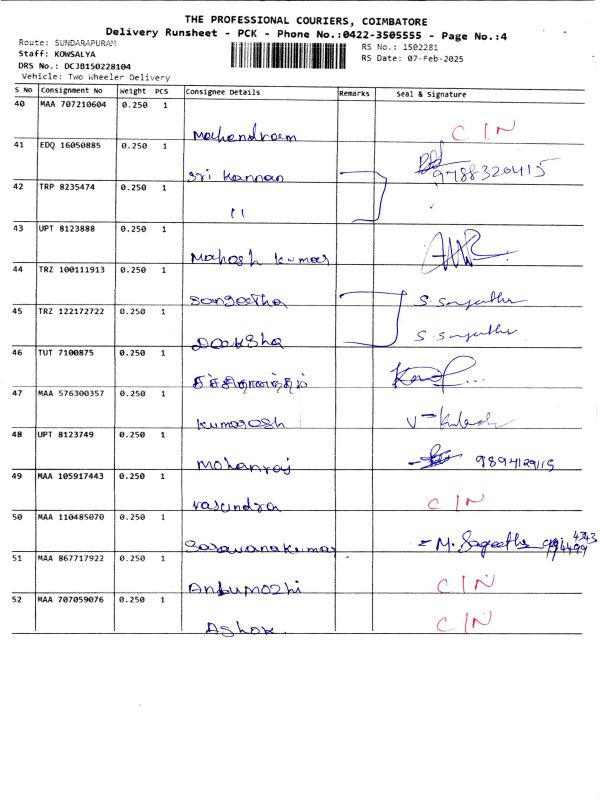 THE PROFESSIONAL COURIERS, COIMBATORE
Delivery Runsheet - PCK - Phone No.:0422-3505555 - Page No.:4
Route: SUNDARAPURAM
Staff: KOWSALYA
DRS No.: DCJB150228104
Vehicle: Two Wheeler Delivery
RS No.: 1502281
RS Date: 07-Feb-2025
S No Consignment No Weight PCS Consignee Details Remarks Seal & Signature
40 MAA 707210604 0.250 1
Mahendran CIN
41 EDQ 16050885 0.250 1
Sri Kannan 9788320415
42 TRP 8235474 0.250 1
"
43 UPT 8123888 0.250 1
Mahesh kumar
44 TRZ 100111913 0.250 1
Sangeetha S. Sangeetha
45 TRZ 122172722 0.250 1
Daksha S. Sangeetha
46 TUT 7100875 0.250 1
சச்சிதானந்தம்
47 MAA 576300357 0.250 1
Kumaresh
48 UPT 8123749 0.250 1
Mohanraj 9894129115
49 MAA 105917443 0.250 1
Vasundra CIN
50 MAA 110485070 0.250 1
Saravanakumar M. Sageetha
51 MAA 867717922 0.250 1
Anbumozhi CIN
52 MAA 707059076 0.250 1
Ashok. CIN